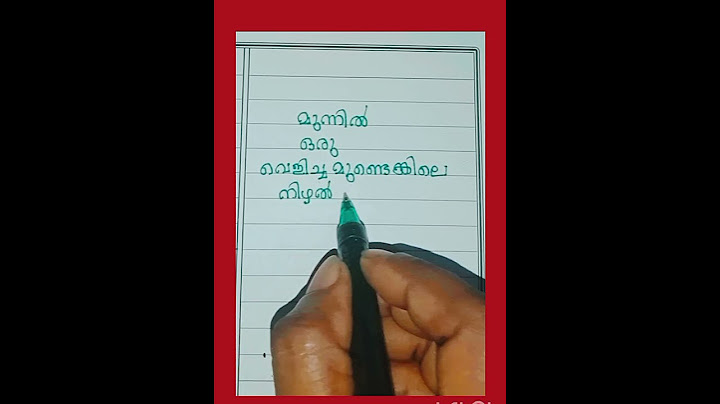 മുന്നിൽ
ഒരു
വെളിച്ച മുണ്ടെങ്കിലെ
നിഴൽ